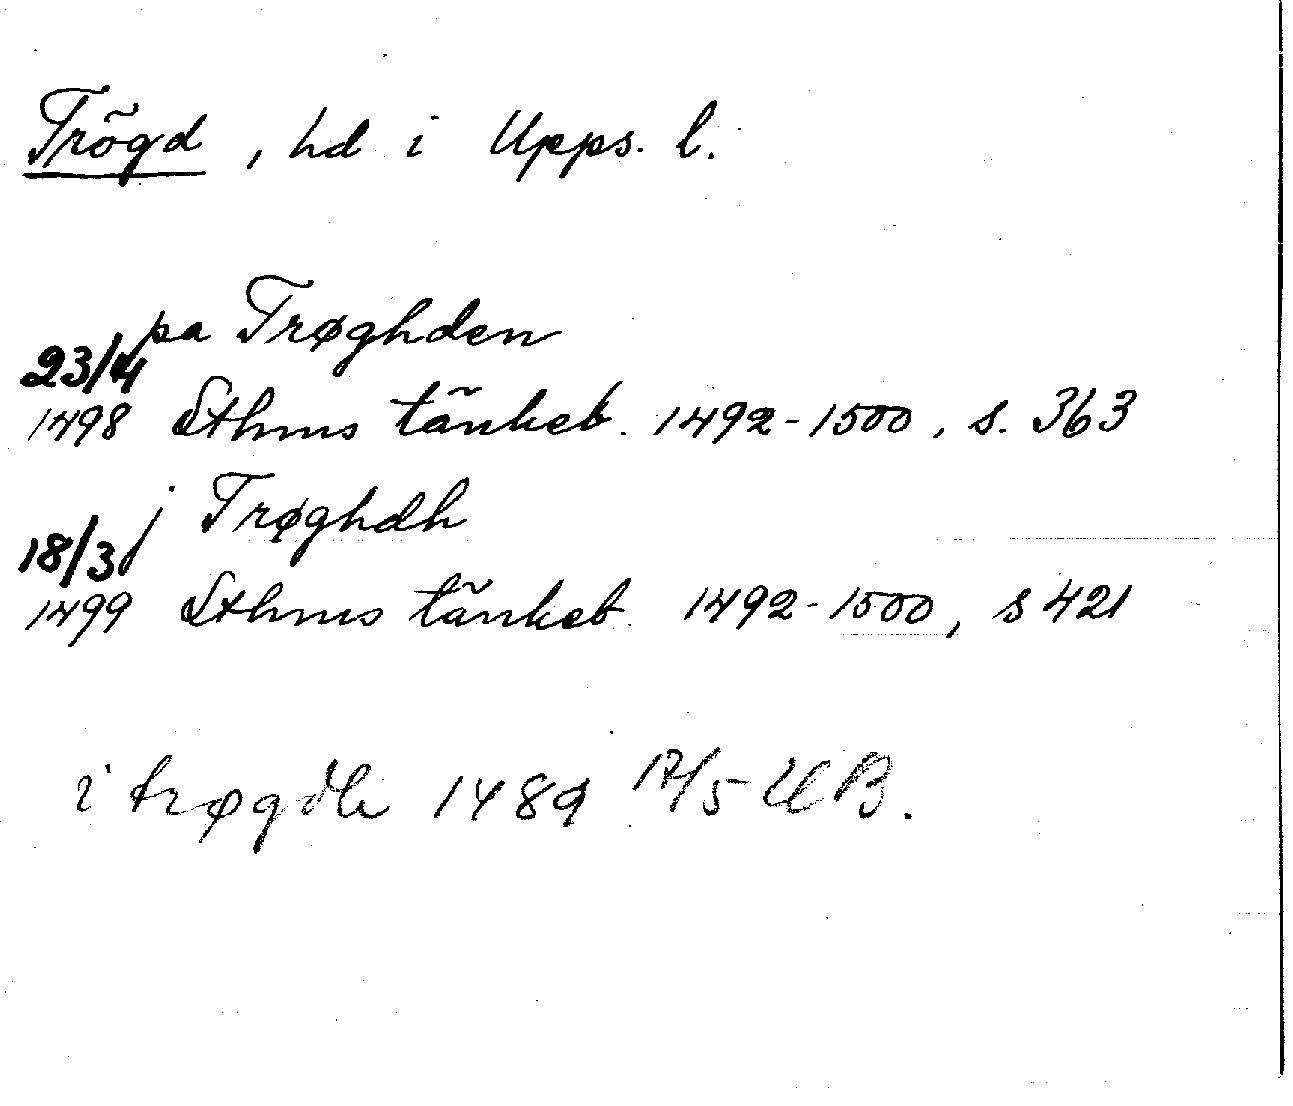 Trögd, hd i Upps. l.
pa Trøghden
23/4
1498 Sthms tänkeb. 1492-1500, s. 363
j Trøghdh
18/3
1499 Sthms tänkeb. 1492-1500, s 421
i trøgdh 1489 17/5 UB.